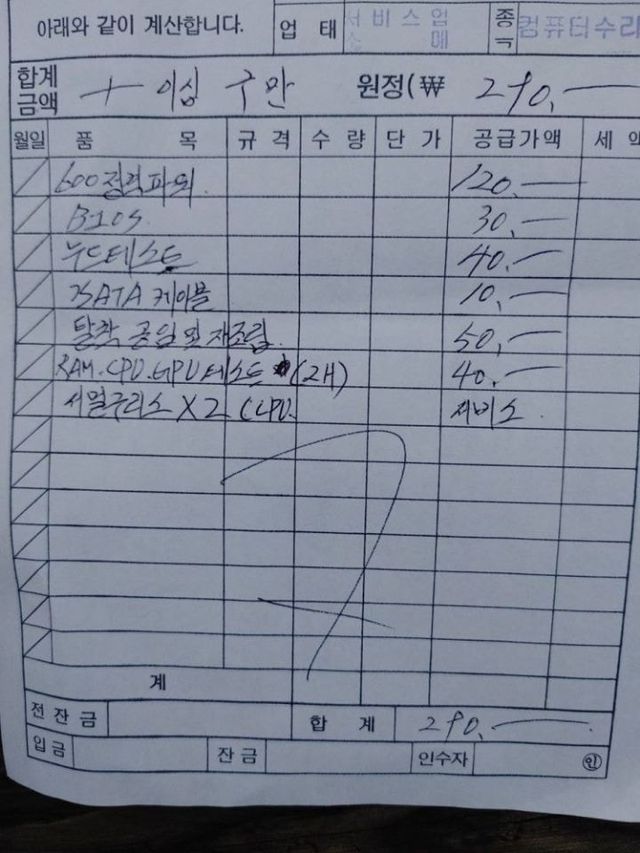 아래와 같이 계산합니다. 업 태 서비스업 소 매 종 컴퓨터수리
합계 금액 이십 구만 원정(₩ 290,
월일 품 목 규 격 수 량 단 가 공급가액 세 액
600정격파워 120.
BIOS 30,
누드테스트 40.
SATA 케이블 10,
탈착 공임 및 재조립 50,
RAM.CPU.GPU테스트 (2H) 40.
서멀구리스 X2 (CPU 서비스
계
전잔금 합 계 290,
입금 잔금 인수자 ㊞